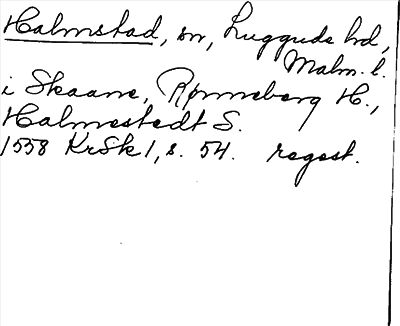 Halmstad, sn, Luggude hd,
Malm. l.
i Skaane, Rønneberg H.,
Halmestedt S.
1558 KrSk 1, s. 54. regest.